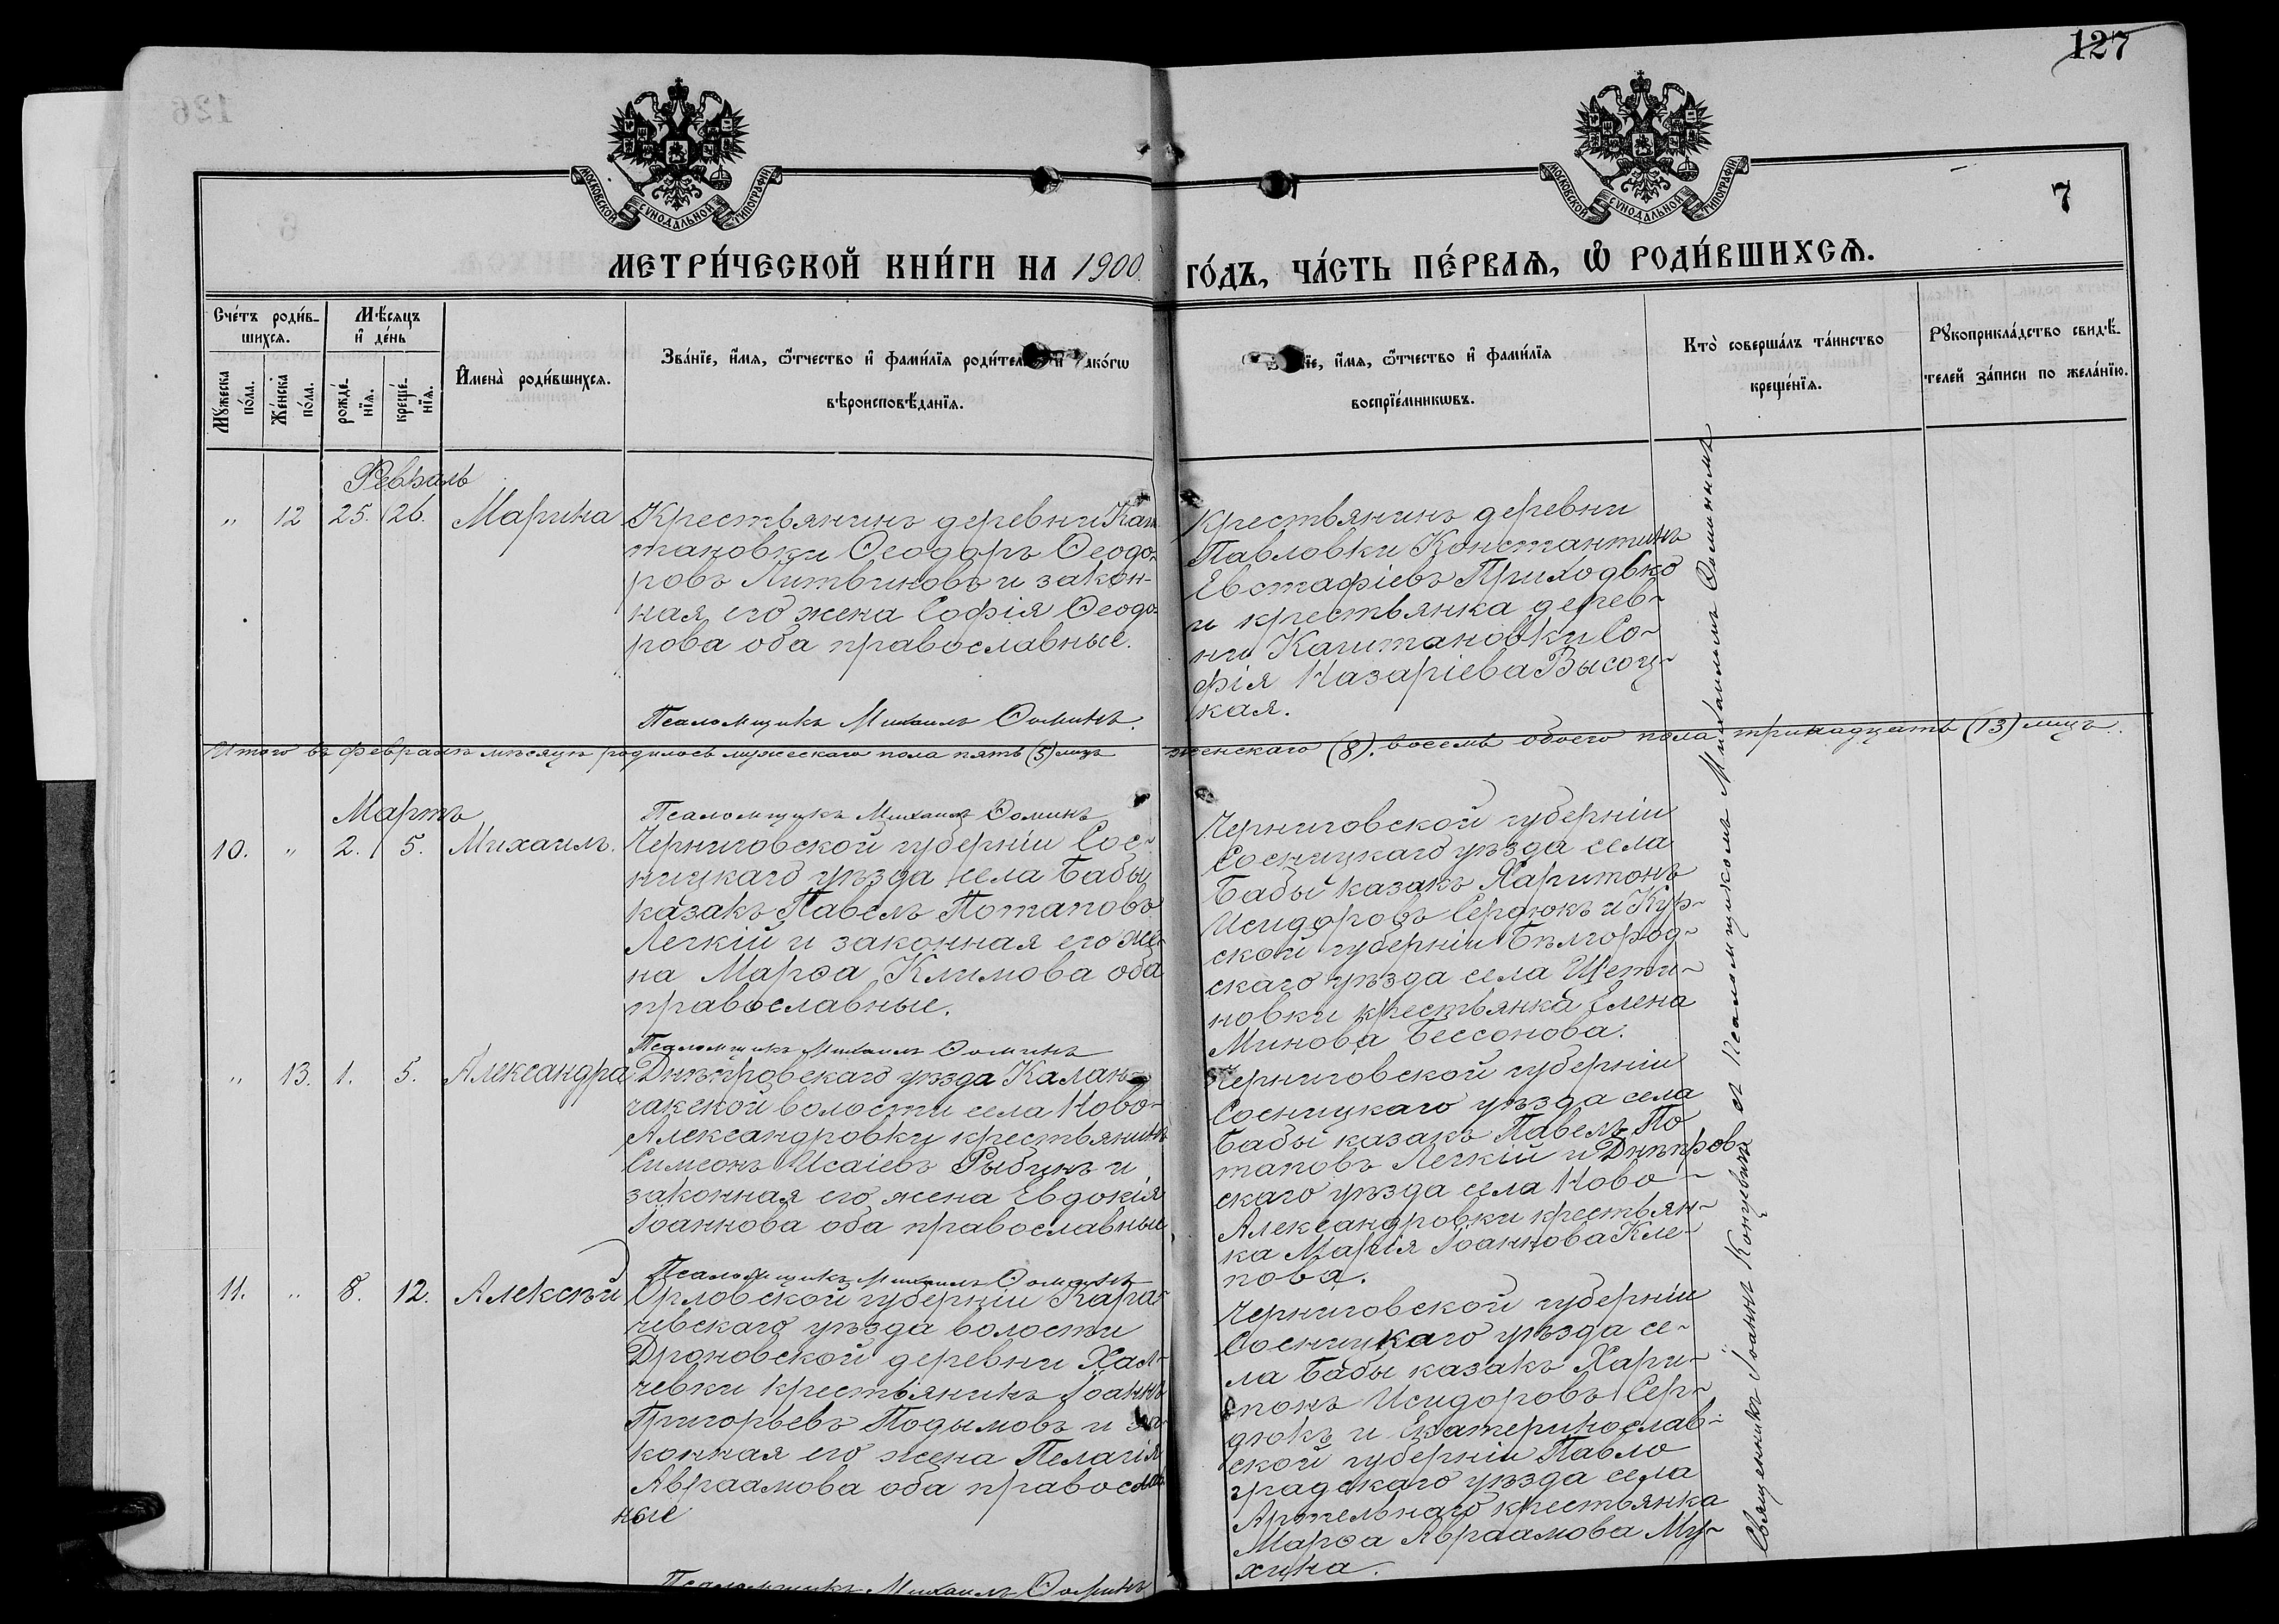 127
126
МОСКОВСКОЙ СѴНОДАЛЬНОЙ ТИПОГРАФІИ
МОСКОВСКОЙ СѴНОДАЛЬНОЙ ТИПОГРАФІИ
7
МЕТРИ́ЧЕСКОЙ КНИ́ГИ НА 1900
ГО́ДЪ, ЧА́СТЬ ПЕ́РВАѦ, Ѡ҆ РОДИ́ВШИХСѦ.
Сче́тъ роди́в-
шихсѧ.
Мꙋ́жеска по́ла.
Же́нска по́ла.
Мѣ́сяцъ
и҆ де́нь
рожде́-
нїѧ.
креще́-
нїѧ.
И҆мена̀ роди́вшихсѧ.
Зва́нїе, и҆́мѧ, ѻ҆́тчество и҆ фами́лїѧ роди́тел и҆ како́гѡ
вѣроисповѣ́данїѧ.
їе, и҆́мѧ, ѻ҆́тчество и҆ фами́лїѧ
воспрїе́мникѡвъ.
Кто̀ соверша́лъ та́инство
креще́нїѧ.
Рꙋкоприкла́дство свидѣ́-
телей за́писи по жела́нїю.
Февраль
„ 12 25. 26. Марина
Крестьянинъ деревни Каш
тановки Ѳеодоръ Ѳеодо-
ровъ Литвиновъ и закон-
ная его жена Софія Ѳеодо-
рова оба православные.
Псаломщикъ Михаилъ Ѳоминъ.
Крестьянинъ деревни
Павловки Константинъ
Евстафіевъ Приходько
и крестьянка дерев-
ни Каштановки Со-
фія Назаріева Высоц-
кая.
Итого въ февралѣ мѣсяцѣ родилось мужескаго пола пять (5) лицъ женскаго (8). восемь обоего пола тринадцать (13) лицъ.
Мартъ
Псаломщикъ Михаилъ Ѳоминъ
10. „ 2. 5. Михаилъ.
Черниговской губерніи Сос-
ницкаго уѣзда села Бабы
казакъ Павелъ Потаповъ
Легкій и законная его же-
на Марѳа Климова оба
православные.
Псаломщикъ Михаилъ Ѳоминъ
Черниговской губерніи
Сосницкаго уѣзда села
Бабы казакъ Харитонъ
Исидоровъ Сердюкъ и Кур-
ской губерніи Бѣлгород-
скаго уѣзда села Щети-
новки крестьянка Елена
Минова Бессонова.
„ 13. 1. 5. Александра
Днѣпровскаго уѣзда Калан-
чакской волости села Ново-
Александровки крестьянинъ
Симеонъ Исаіевъ Рыбцнъ и
законная его жена Евдокія
Іоаннова оба православные
Псаломщикъ Михаилъ Ѳоминъ
Черниговской губерніи
Сосницкаго уѣзда села
Бабы казакъ Павелъ По
таповъ Легкій и Днѣпров-
скаго уѣзда села Ново-
Александровки крестьян-
ка Марія Іоаннова Кле-
пова.
11. „ 8. 12. Алексѣй
Орловской губерніи Кара-
чевскаго уѣзда волости
Дроновской деревни Хал-
чевки крестьянинъ Іоаннъ
Григорьевъ Подымовъ и за-
конная его жена Пелагія
Авраамова оба православ
ные
Псаломщикъ Михаилъ Ѳоминъ
Черниговской губерніи
Сосницкаго уѣзда се-
ла Бабы казакъ Хари-
тонъ Исидоровъ Сер-
дюкъ и Екатеринослав-
ской губерніи Павло
градскаго уѣзда села
Артельнаго крестьянка
Марѳа Авраамова Му-
хина.
Священникъ Іоаннъ Концевичъ съ Псаломщикомъ Михаиломъ Ѳоминымъ